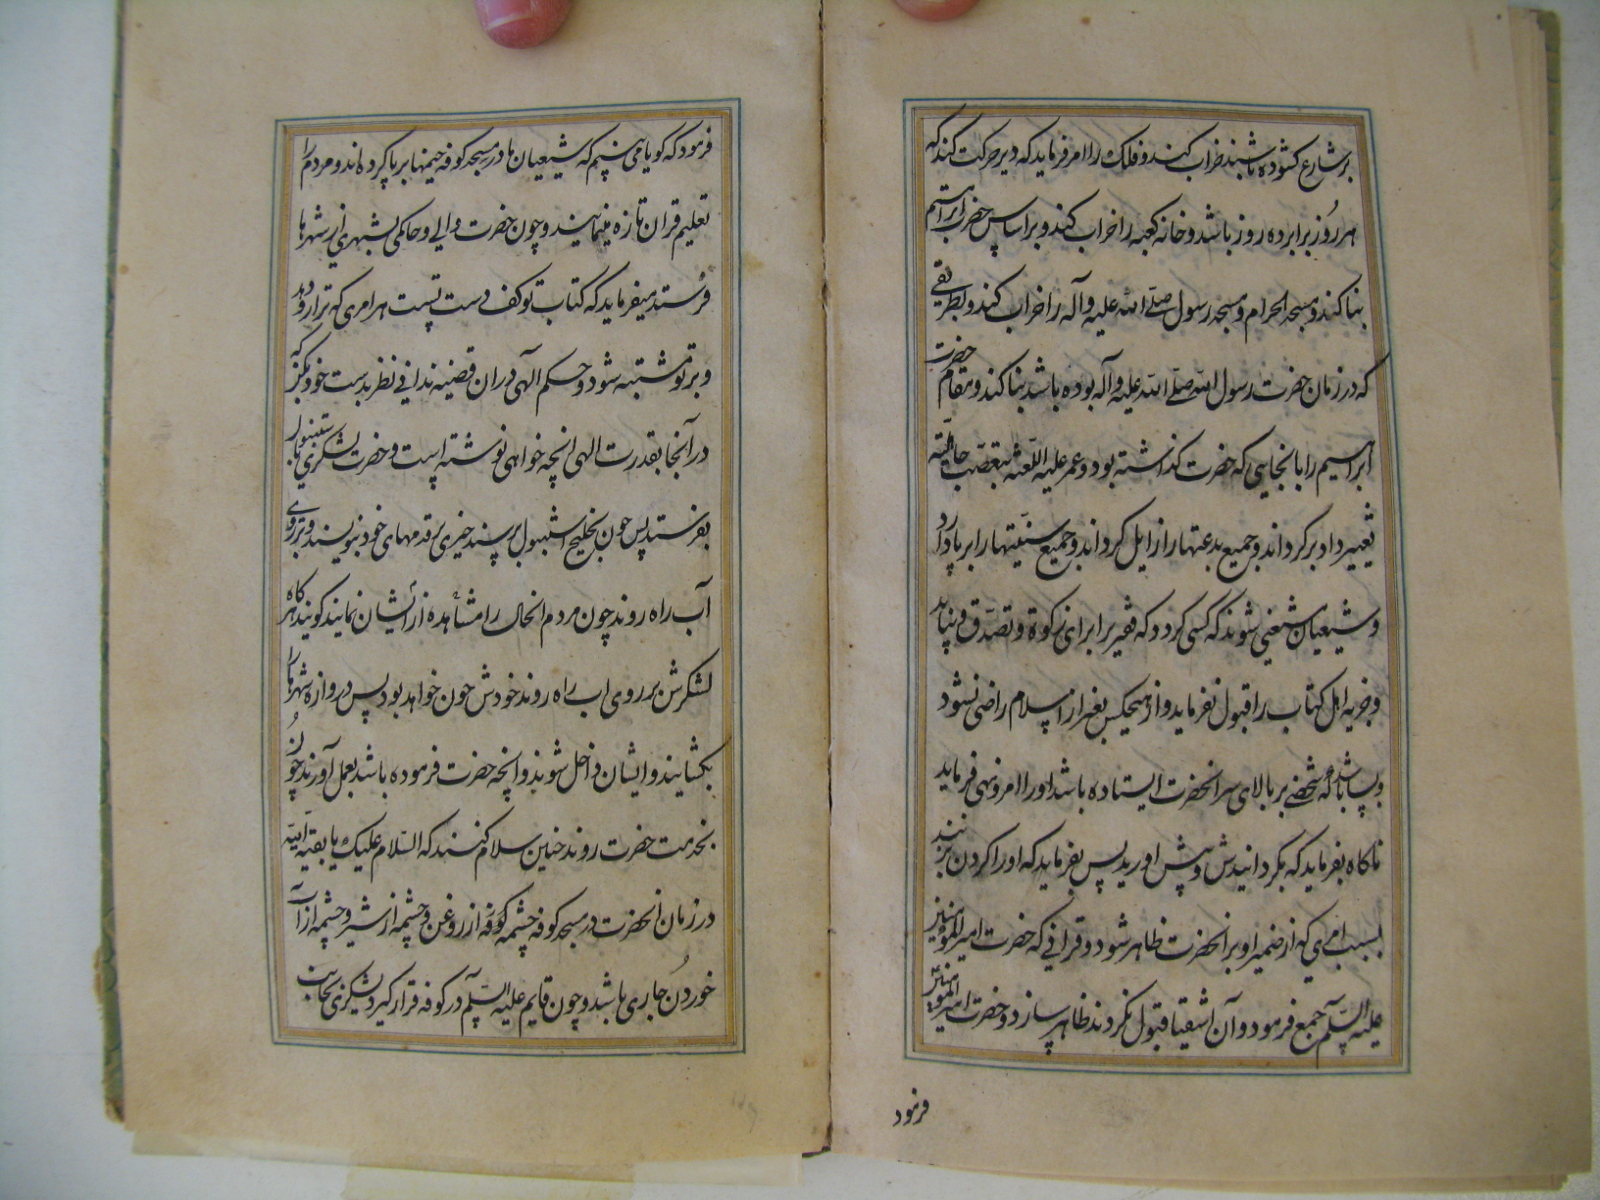 بر شارع کشوده باشند خراب کنند و فلک را امر فرماید که دیر حرکت کند که
هر روز برابر ده روز باشد و خانه کعبه را خراب کند و بر اساس حضرت ابراهیم
بنا کند و مسجد الحرام و مسجد رسول صلی الله علیه و آله را خراب کند و بطریقی
که در زمان حضرت رسول الله صلی الله علیه و آله بوده باشد بنا کند و مقام حضرت
ابراهیم را بانجایی که حضرت کذاشته بود و عمر علیه اللعنه بتعصب جاهلیه
تغییر داد بر کرداند و جمیع بدعتها را زایل کرداند و جمیع سنتها را بر پا دارد
و شیعیان مستغنی شوند که کسی کردد که فقیر برا برای زکوة و تصدق نیابد
و جزیه اهل کتاب را قبول نفرماید و از هیچکس بغیر از اسلام راضی نشود
و بسا باشد که شخصی بر بالای سر انحضرت ایستاده باشد او را امر و نهی فرماید
ناکاه بفرماید که بکردانیدش و پیش اورید پس بفرماید که او را کردن بزنند
بسبب امری که از ضمیر او بر انحضرت ظاهر شود و قرانی که حضرت امیر المومنین
علیه السلم جمع فرمود و آن اشقیا قبول نکردند ظاهر سازد و حضرت امیر المومنین
فرمود
فرمود که کویا می بینم که شیعیان ما در مسجد کوفه خیمها بر پا کرده اند و مردم را
تعلیم قران تازه مینمایند و چون حضرت والی و حاکمی بشهری از شهرها
فرستد میفرماید که کتاب تو کف دست تست هر امری که ترا رو دهد
و بر تو مشتبه شود و حکم الهی در ان قضیه ندانی نظر بدست خود بکن که
در آنجا بقدرت الهی انچه خواهی نوشته است و حضرت لشکری باستنبول
بفرستد پس چون بخلیج استنبول برسند چیزی بر قدمهای خود بنویسند و بر روی
آب راه روند چون مردم انحال را مشاهده از ایشان نمایند کویند هر کاه
لشکرش بر روی اب راه روند خودش چون خواهد بود پس دروازه شهر را
بکشایند و ایشان داخل شوند و انچه حضرت فرموده باشد بعمل آورند چون
بخدمت حضرت روند چنین سلام کنند که السلام علیک یا بقیة الله
در زمان انحضرت در مسجد کوفه چشمه از روغن و چشمه از شیر و چشمه از آب
خوردن جاری باشد و چون قایم علیه السلم در کوفه قرار کیرد لشکری بجانب